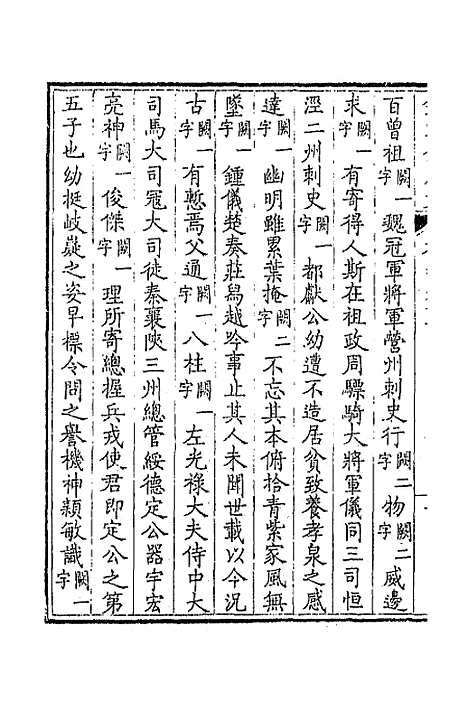 百曾祖闕一字魏冠軍將軍營州刺史行闕二字物闕二字威邊
求闕一字有寄得人斯在祖政周驃騎大將軍儀同三司恒
涇二州刺史闕一字都獻公幼遭不造居貧致養孝泉之感
達闕一字幽明雖累葉掩闕二字不忘其本俯拾青紫家風無
墜闕一字鍾儀楚奏莊舄越吟事止其人未聞世載以今況
古闕一字有慙焉父通闕一字八柱闕一字左光祿大夫侍中大
司馬大司冦大司徒秦襄陜三州總管綏德定公器宇宏
亮神闕一字俊傑闕一字理所寄總握兵戎使君即定公之第
五子也幼挺岐嶷之姿早摽令問之譽機神穎敏識闕一字